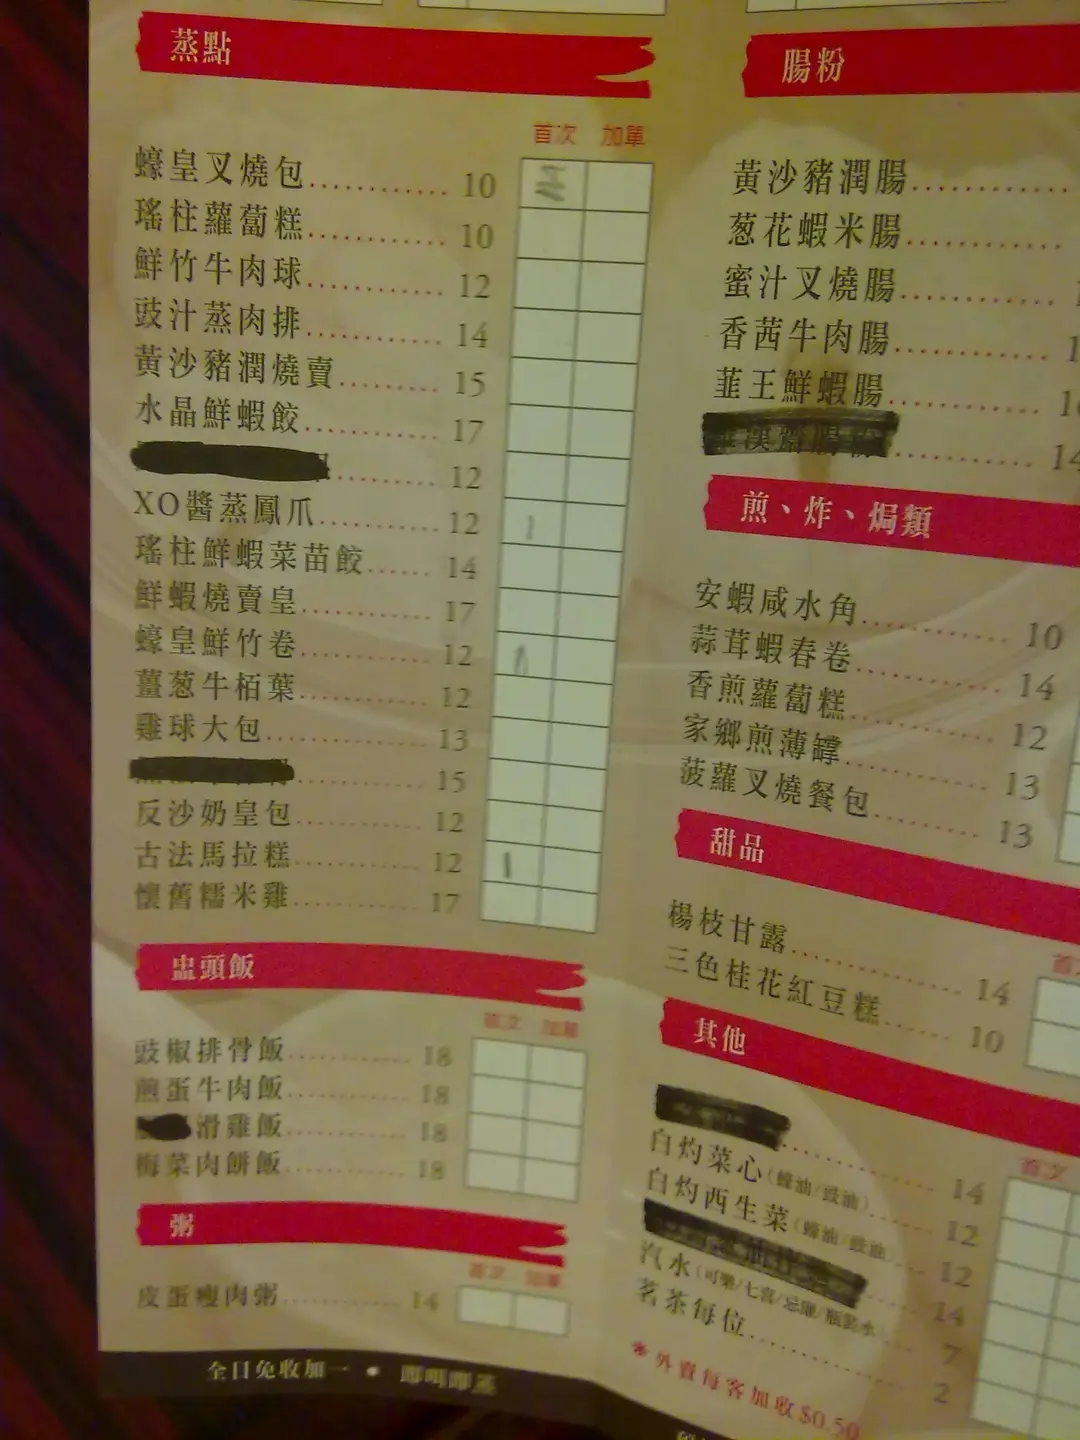 蒸點
首次 加單
蠔皇叉燒包 10
瑤柱蘿蔔糕 10
鮮竹牛肉球 12
豉汁蒸肉排 14
黃沙豬潤燒賣 15
水晶鮮蝦餃 17
12
XO醬蒸鳳爪 12
瑤柱鮮蝦菜苗餃 14
鮮蝦燒賣皇 17
蠔皇鮮竹卷 12
薑葱牛栢葉 12
雞球大包 13
15
反沙奶皇包 12
古法馬拉糕 12
懷舊糯米雞 17
盅頭飯
首次 加單
豉椒排骨飯 18
煎蛋牛肉飯 18
滑雞飯 18
梅菜肉餅飯 18
粥
首次 加單
皮蛋瘦肉粥 14
全日免收加一 • 即叫即蒸
腸粉
黃沙豬潤腸
葱花蝦米腸
蜜汁叉燒腸
香茜牛肉腸
韮王鮮蝦腸
14
煎、炸、焗類
安蝦咸水角 10
蒜茸蝦春卷 14
香煎蘿蔔糕 12
家鄉煎薄罉 13
菠蘿叉燒餐包 13
甜品
首次
楊枝甘露 14
三色桂花紅豆糕 10
其他
首次
14
白灼菜心(蠔油/豉油) 12
白灼西生菜(蠔油/豉油) 12
14
汽水(可樂/七喜/忌廉/瓶裝水) 7
茗茶每位 2
*外賣每客加收$0.50